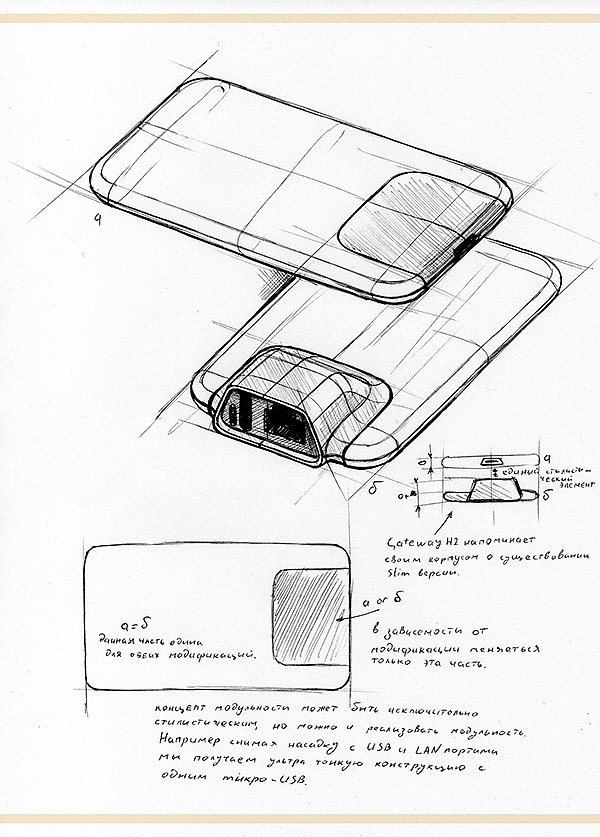 а
б
а
единый стилисти-
ческий
элемент
б
Gateway H2 напоминает
своим корпусом о существовании
Slim версии.
а or б
а = б
данная часть едина
для обеих модификаций.
в зависимости от
модификации меняеться
только эта часть.
концепт модульности может быть исключительно
стилистическим, но можно и реализовать модульность.
Например снимая насадку с USB и LAN портами
мы получаем ультра тонкую конструкцию с
одним микро-USB.